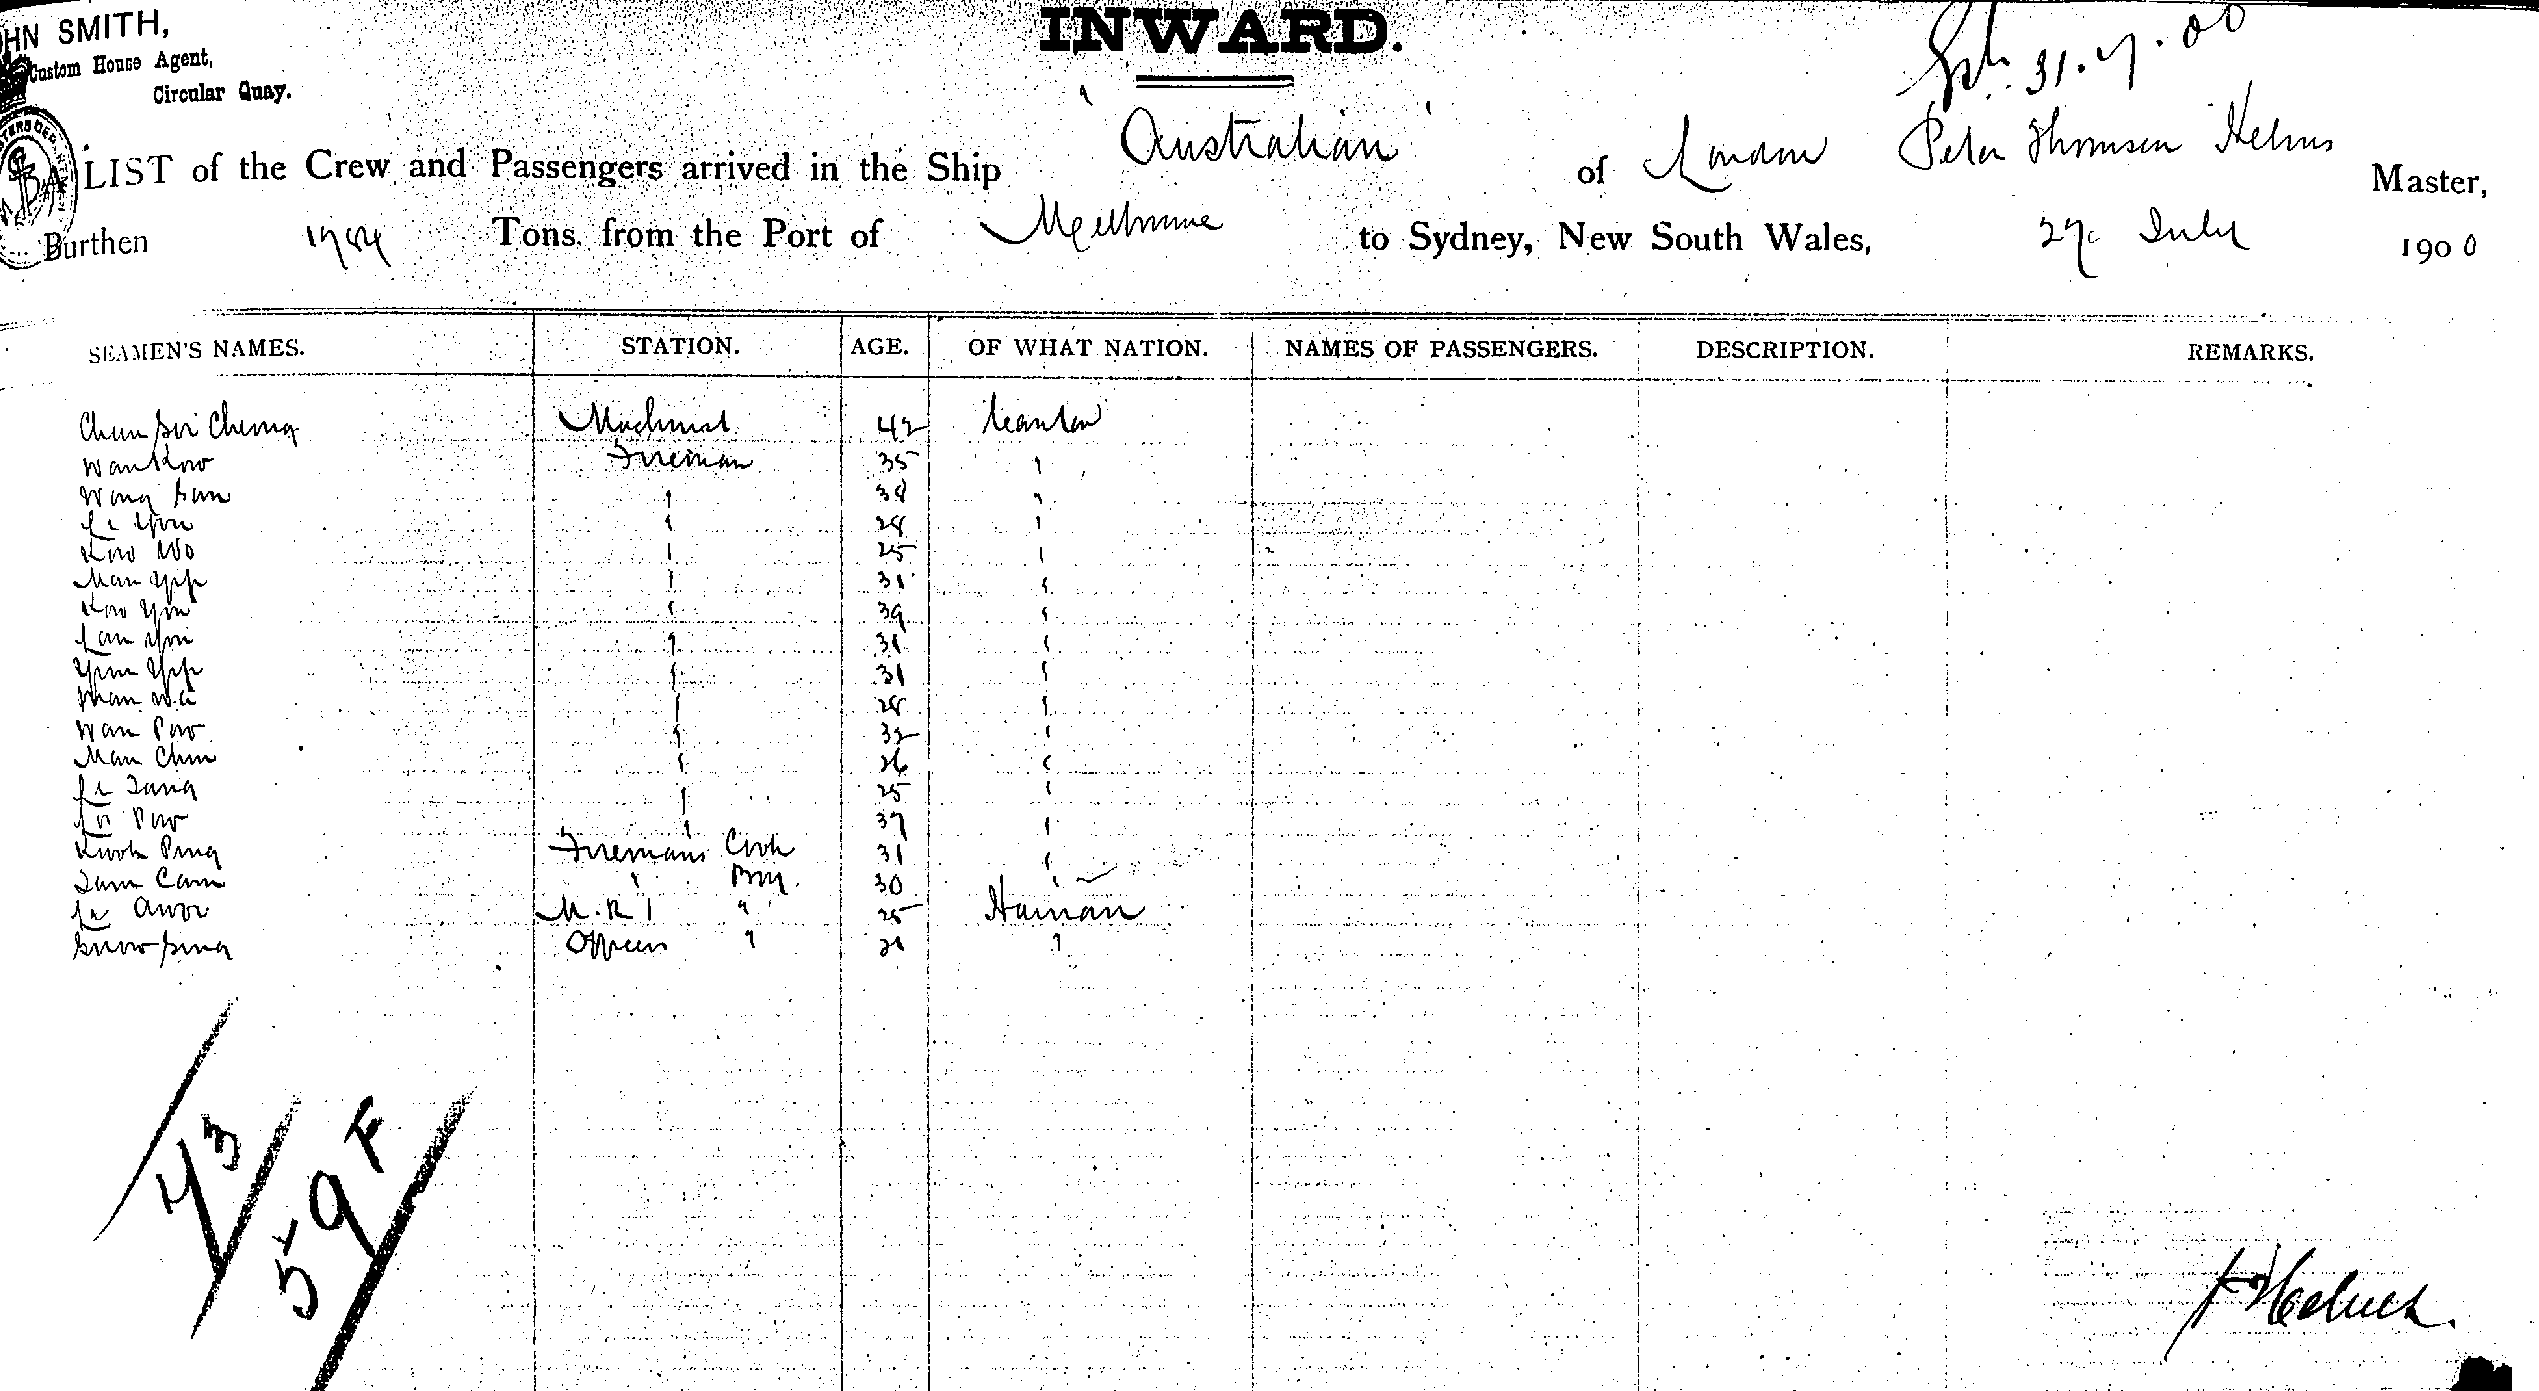 HN SMITH,
Custom House Agent,
Circular Quay.
INWARD.
31.7.00
LIST of the Crew and Passengers arrived in the Ship "Australian" of London Peter Thomson Helms Master,
Burthen 1784 Tons from the Port of Melbourne to Sydney, New South Wales, 29 July 1900
SEAMEN'S NAMES. STATION. AGE. OF WHAT NATION. NAMES OF PASSENGERS. DESCRIPTION. REMARKS.
Chun Sui Cheong Machinist 42 Canton
Wan Kow Fireman 35 "
Wong San " 38 "
" 28 "
Kow Wo " 25 "
Man Yip " 31 "
Kow Yin " 39 "
Lam Yin " 31 "
Yim Yip " 31 "
" 28 "
Wan Pow " 32 "
Man Chin " 26 "
Le Tang " 25 "
Pow " 37 "
Kwok Ping Firemans Cook 31 "
Tam Cam " Boy. 30 "
M.R 1 " 25 Hainan
Officers " 21 "
43
59 F